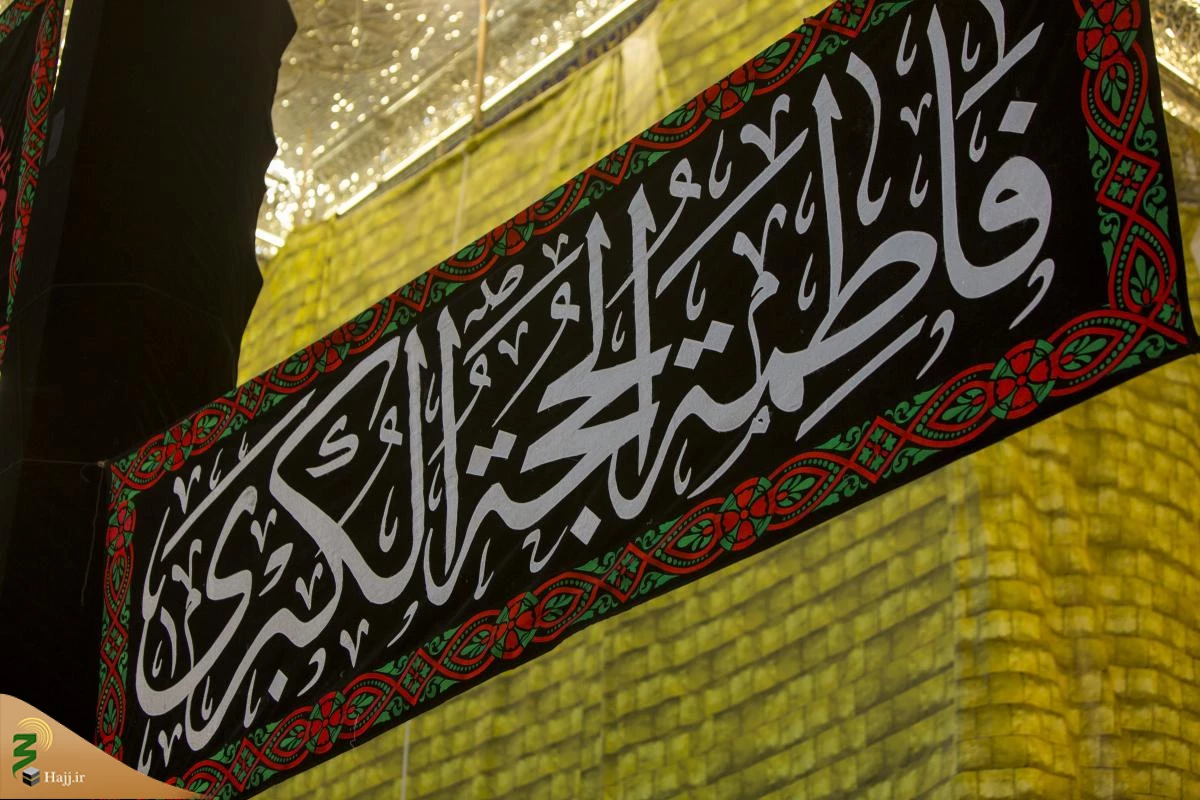 فاطمة الحجة الكبرى
Hajj.ir